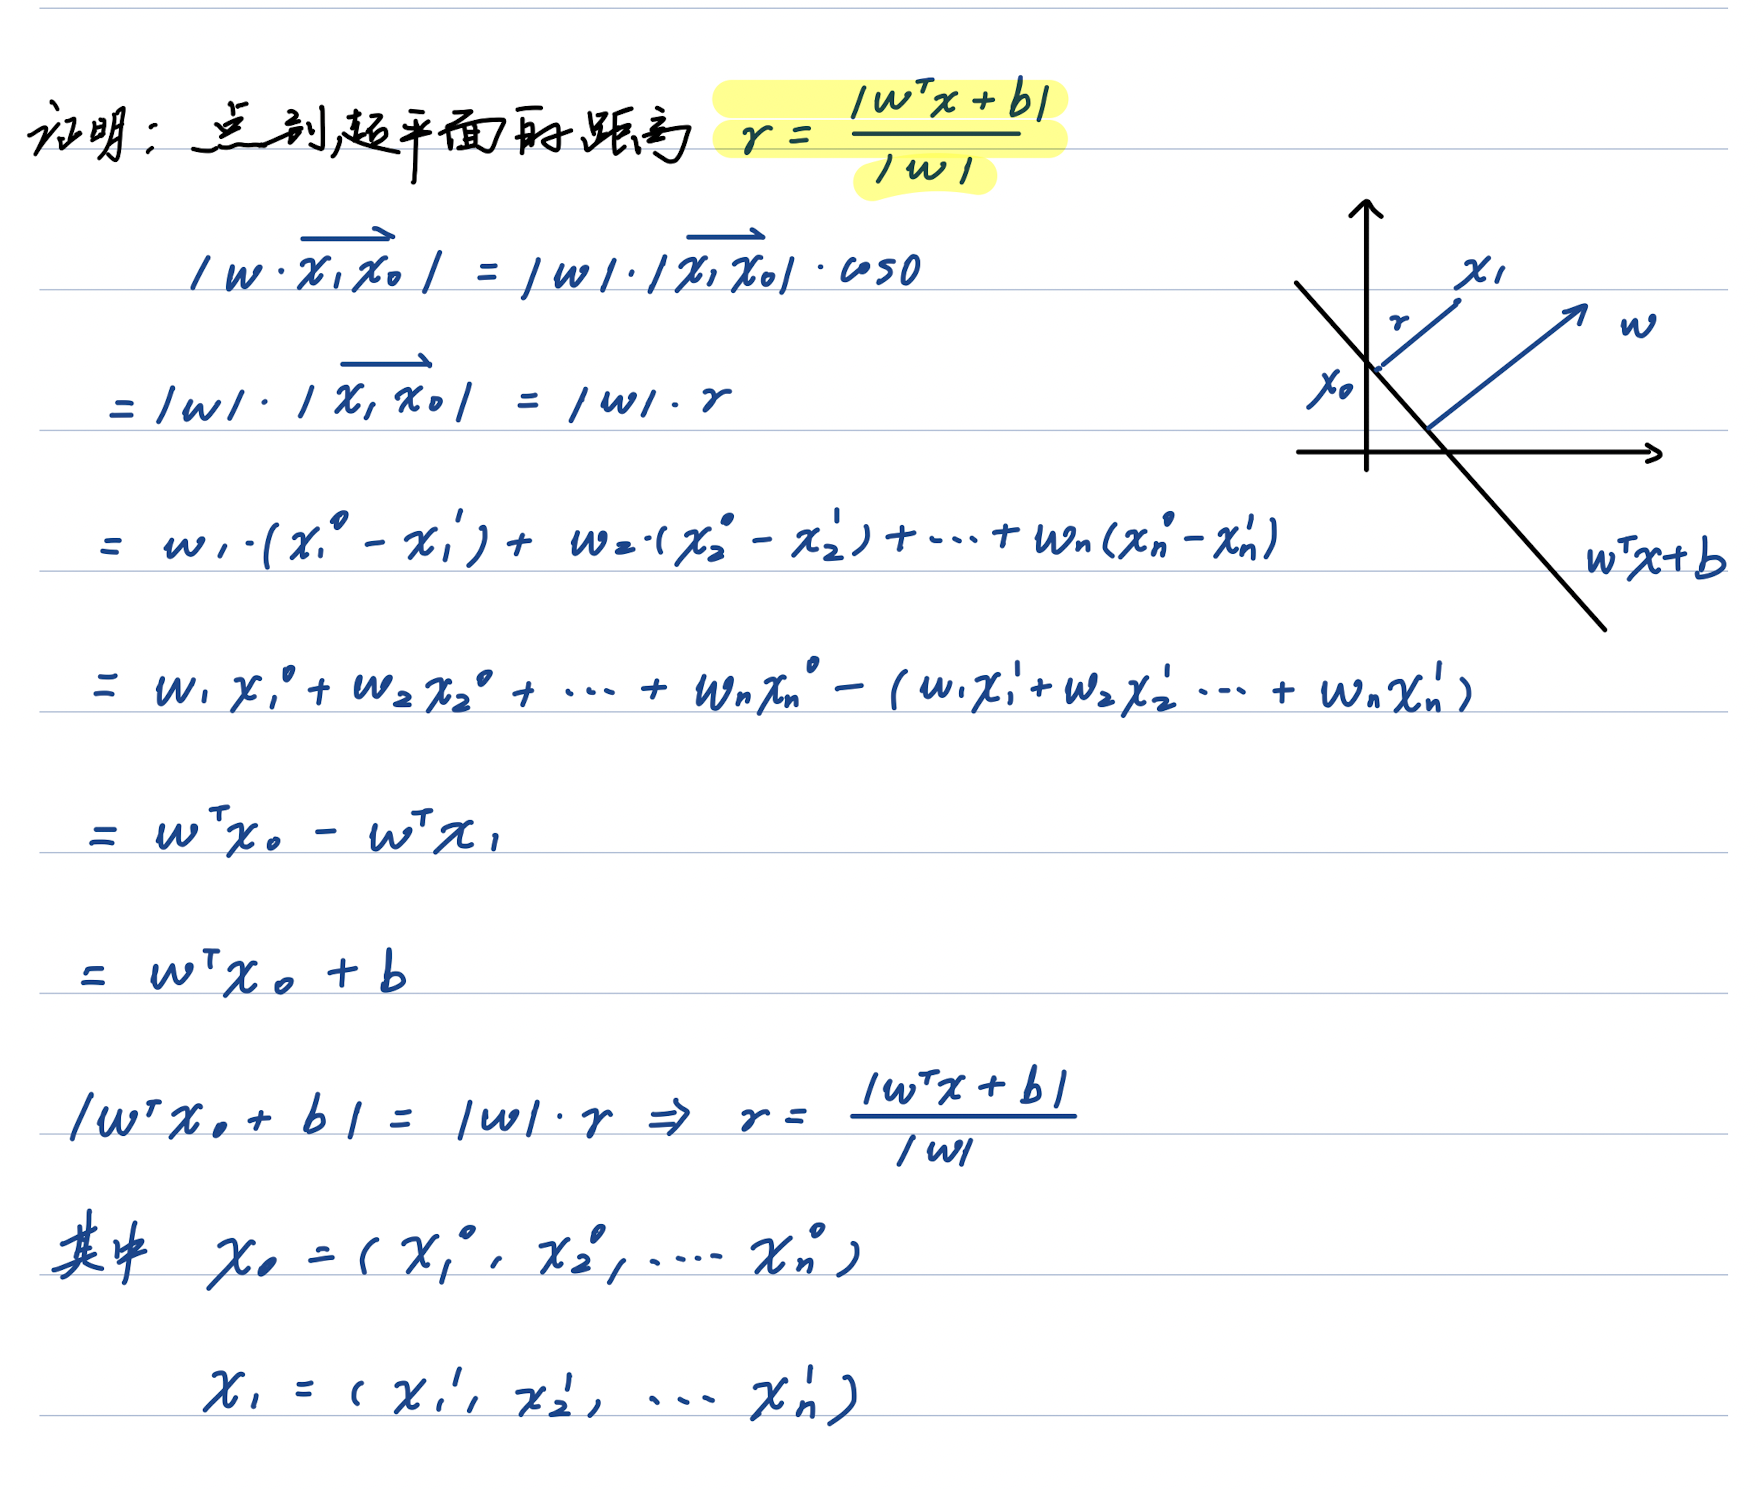 证明：点到超平面的距离 r = |wᵀx + b| / |w|
|w · \overrightarrow{x₁x₀}| = |w| · |\overrightarrow{x₁x₀}| · cos0
= |w| · |\overrightarrow{x₁x₀}| = |w| · r
= w₁·(x₁⁰ - x₁¹) + w₂·(x₂⁰ - x₂¹) + ... + wₙ(xₙ⁰ - xₙ¹)
= w₁x₁⁰ + w₂x₂⁰ + ... + wₙxₙ⁰ - (w₁x₁¹ + w₂x₂¹ ... + wₙxₙ¹)
= wᵀx₀ - wᵀx₁
= wᵀx₀ + b
|wᵀx₀ + b| = |w| · r ⇒ r = |wᵀx + b| / |w|
其中 x₀ = (x₁⁰, x₂⁰, ... xₙ⁰)
x₁ = (x₁¹, x₂¹, ... xₙ¹)
x₁
r
w
x₀
wᵀx + b